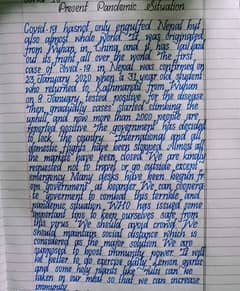 Present Pandemic Situation
Covid-19 hasnot only engulfed Nepal but
also almost whole world. It was originated
from Wuhan in China, and it has
out its fright all over the world. The first
case of Covid-19 in Nepal was confirmed on
23 January 2020 when a 31 year old student
who returned to Kathmandu from Wuhan
on 9 January, tested positive for the disease
Then gradually cases started climbing the
uphill, and now more than 2000 people are
reported positive. The government has decided
to lock the country. International and all
domestic flights have been stopped. Almost all
the markets have been closed. We are kindly
requested not to travel or go outside, except
emergency. Many steps have been begun fr
om government all together. We can coopera
te goverment to combat this terrible and
pandemic situation. WHO has issued some
important tips to keep ourselves safe from
this virus. We should avoid crowd. We
should maintain social distance which is
considered as the major solution. We are
supposed to boost immunity power. It will
be better to go exercise daily. Lemon, garlic
and some holy plants like tulsi can be
taken in our meal so that we can increase
immunity.